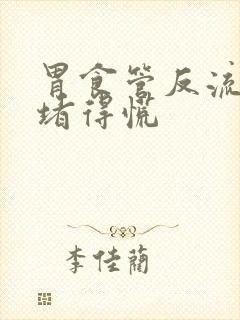 胃食管反流
堵得慌
李佳蔺